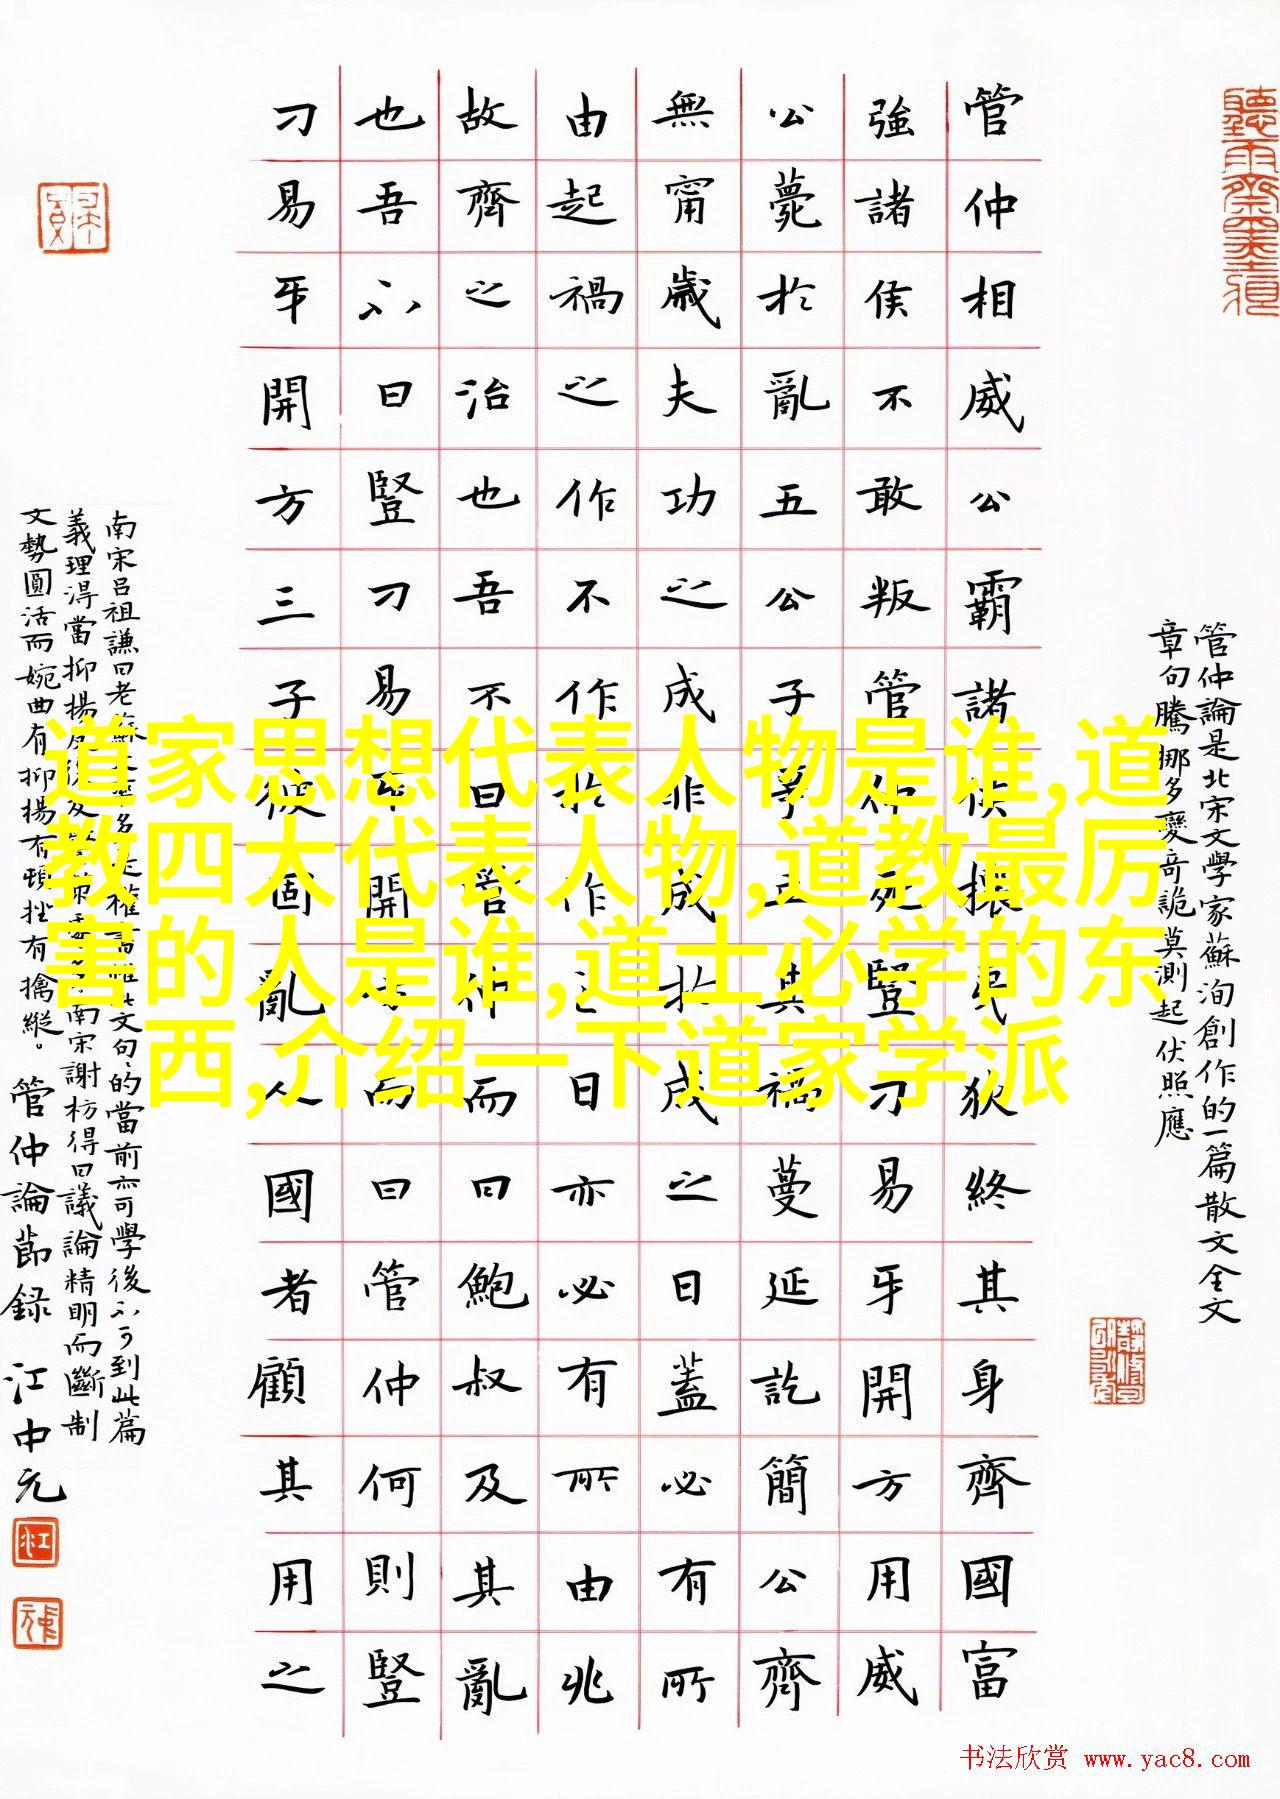 管仲相威公霸諸侯攘夷狄終其身齊國富
強諸侯不敢叛管仲死豎刁易牙開方用威
公薨於亂五公子爭立其禍蔓延訖簡公齊
無甯歲夫功之成非成於成之日蓋必有所
由起禍之作不作於作之日亦必有所由兆
故齊之治也吾不曰管仲而曰鮑叔及其亂
也吾不曰豎刁易牙開方而曰管仲何則豎
刁易牙開方三子彼固亂人國者顧其用之
管仲論是北宋文學家蘇洵創作的一篇散文全文
章句騰挪多變奇詭莫測起伏照應
南宋吕祖謙曰老蘇文句的當前亦可學後不可到此篇
義理得當抑揚南宋謝枋得曰議論精明而斷制
文勢圓活而婉曲有抑揚有頓挫有擒縱。管仲論節錄 江中元
道家思想代表人物是谁,道
教四大代表人物,道教最厉
害的人是谁,道士必学的东
西,介绍一下道家学派
书法欣赏 www.yac8.com